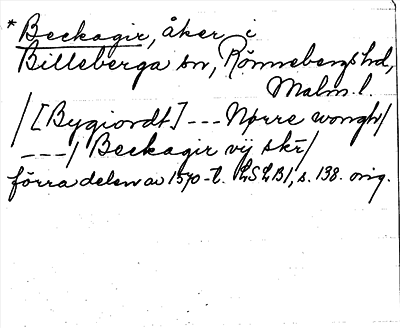 * Beckagir, åker i
Billeberga sn, Rönnebergs hd,
Malm. l.
/[Bygiordt] --- Nørre wongh/
---/ Beckagir vij skr/
förra delen av 1570-t. LSLB1, s. 138. orig.